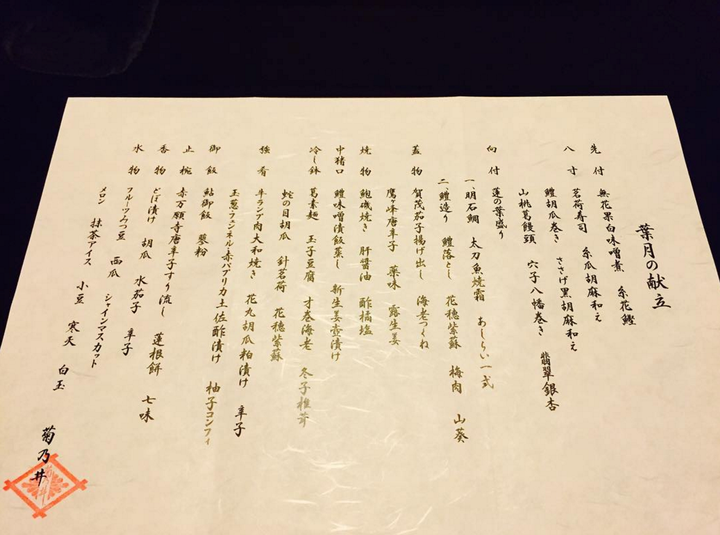 葉月の献立
先付 無花果白味噌煮 糸花鰹
八寸 茗荷寿司 糸瓜胡麻和え
鱧胡瓜巻き ささげ黒胡麻和え
山桃葛饅頭 穴子八幡巻き 翡翠銀杏
向付 蓮の葉盛り
一、明石鯛 太刀魚焼霜 あしらい一式
二、鱧造り 鱧落とし 花穂紫蘇 梅肉 山葵
蓋物 賀茂茄子揚げ出し 海老つくね
鷹ヶ峰唐辛子 薬味 露生姜
焼物 鮑磯焼き 肝醤油 酢橘塩
中猪口 鱧味噌漬飯蒸し 新生姜壺漬け
冷し鉢 葛素麺 玉子豆腐 才巻海老 冬子椎茸
蛇の目胡瓜 針茗荷 花穂紫蘇
強肴 牛ランプ肉大和焼き 花丸胡瓜粕漬け 辛子
玉葱フェンネル赤パプリカ土佐酢漬け 柚子コンフィ
御飯 鮎御飯 蓼粉
止椀 赤万願寺唐辛子すり流し 蓮根餅 七味
香物 どぼ漬け 胡瓜 水茄子 辛子
水物 フルーツみつ豆 西瓜 シャインマスカット
メロン 抹茶アイス 小豆 寒天 白玉
菊乃井